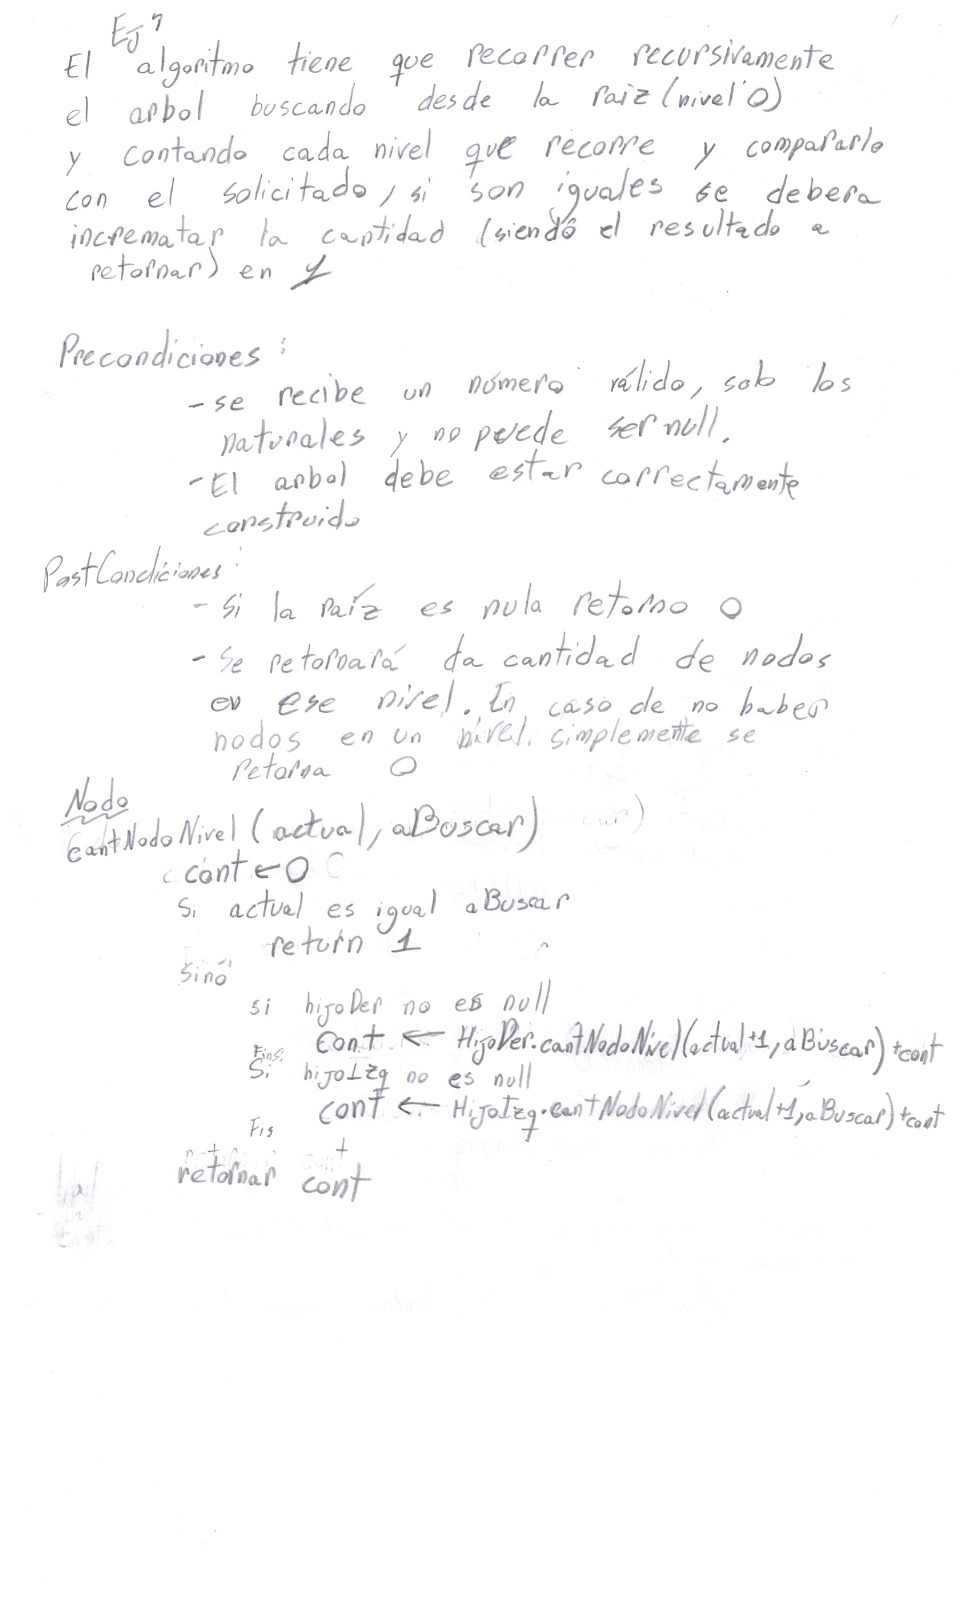 EJ 7
El algoritmo tiene que recorrer recursivamente
el arbol buscando desde la raiz (nivel 0)
y contando cada nivel que recorre y compararlo
con el solicitado, si son iguales se debera
incrematar la cantidad (siendo el resultado a
retornar) en 1
Precondiciones:
- se recibe un número válido, sob los
naturales y no puede ser null.
- El arbol debe estar correctamente
construido
PostCondiciones:
- Si la raíz es nula retorno 0
- Se retornará la cantidad de nodos
en ese nivel. En caso de no haber
nodos en un nivel, simplemente se
retorna 0
Nodo
cantNodoNivel (actual, aBuscar)
cont ← 0
Si actual es igual aBuscar
return 1
Sino
si hijoDer no es null
cont ← HijoDer.cantNodoNivel(actual+1, aBuscar) + cont
Fins.
Si hijoIzq no es null
cont ← HijoIzq.cantNodoNivel(actual+1, aBuscar) + cont
Fis
retornar cont